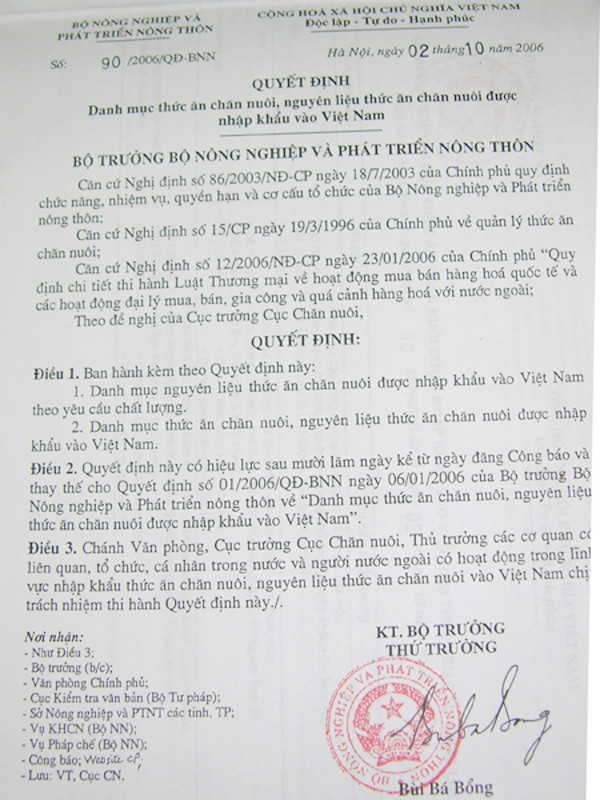 BỘ NÔNG NGHIỆP VÀ
PHÁT TRIỂN NÔNG THÔN
CỘNG HOÀ XÃ HỘI CHỦ NGHĨA VIỆT NAM
Độc lập - Tự do - Hạnh phúc
Số: 90 /2006/QĐ-BNN
Hà Nội, ngày 02 tháng 10 năm 2006
QUYẾT ĐỊNH
Danh mục thức ăn chăn nuôi, nguyên liệu thức ăn chăn nuôi được
nhập khẩu vào Việt Nam
BỘ TRƯỞNG BỘ NÔNG NGHIỆP VÀ PHÁT TRIỂN NÔNG THÔN
Căn cứ Nghị định số 86/2003/NĐ-CP ngày 18/7/2003 của Chính phủ quy định
chức năng, nhiệm vụ, quyền hạn và cơ cấu tổ chức của Bộ Nông nghiệp và Phát triển
nông thôn;
Căn cứ Nghị định số 15/CP ngày 19/3/1996 của Chính phủ về quản lý thức ăn
chăn nuôi;
Căn cứ Nghị định số 12/2006/NĐ-CP ngày 23/01/2006 của Chính phủ “Quy
định chi tiết thi hành Luật Thương mại về hoạt động mua bán hàng hoá quốc tế và
các hoạt động đại lý mua, bán, gia công và quá cảnh hàng hoá với nước ngoài;
Theo đề nghị của Cục trưởng Cục Chăn nuôi,
QUYẾT ĐỊNH:
Điều 1. Ban hành kèm theo Quyết định này:
1. Danh mục nguyên liệu thức ăn chăn nuôi được nhập khẩu vào Việt Nam
theo yêu cầu chất lượng.
2. Danh mục thức ăn chăn nuôi, nguyên liệu thức ăn chăn nuôi được nhập
khẩu vào Việt Nam.
Điều 2. Quyết định này có hiệu lực sau mười lăm ngày kể từ ngày đăng Công báo và
thay thế cho Quyết định số 01/2006/QĐ-BNN ngày 06/01/2006 của Bộ trưởng Bộ
Nông nghiệp và Phát triển nông thôn về “Danh mục thức ăn chăn nuôi, nguyên liệu
thức ăn chăn nuôi được nhập khẩu vào Việt Nam”.
Điều 3. Chánh Văn phòng, Cục trưởng Cục Chăn nuôi, Thủ trưởng các cơ quan có
liên quan, tổ chức, cá nhân trong nước và người nước ngoài có hoạt động trong lĩnh
vực nhập khẩu thức ăn chăn nuôi, nguyên liệu thức ăn chăn nuôi vào Việt Nam chị
trách nhiệm thi hành Quyết định này./.
Nơi nhận:
- Như Điều 3;
- Bộ trưởng (b/c);
- Văn phòng Chính phủ;
- Cục Kiểm tra văn bản (Bộ Tư pháp);
- Sở Nông nghiệp và PTNT các tỉnh, TP;
- Vụ KHCN (Bộ NN);
- Vụ Pháp chế (Bộ NN);
- Công báo; Website CP;
- Lưu: VT, Cục CN.
KT. BỘ TRƯỞNG
THỨ TRƯỞNG
BỘ NÔNG NGHIỆP VÀ PHÁT TRIỂN NÔNG THÔN
Bùi Bá Bổng